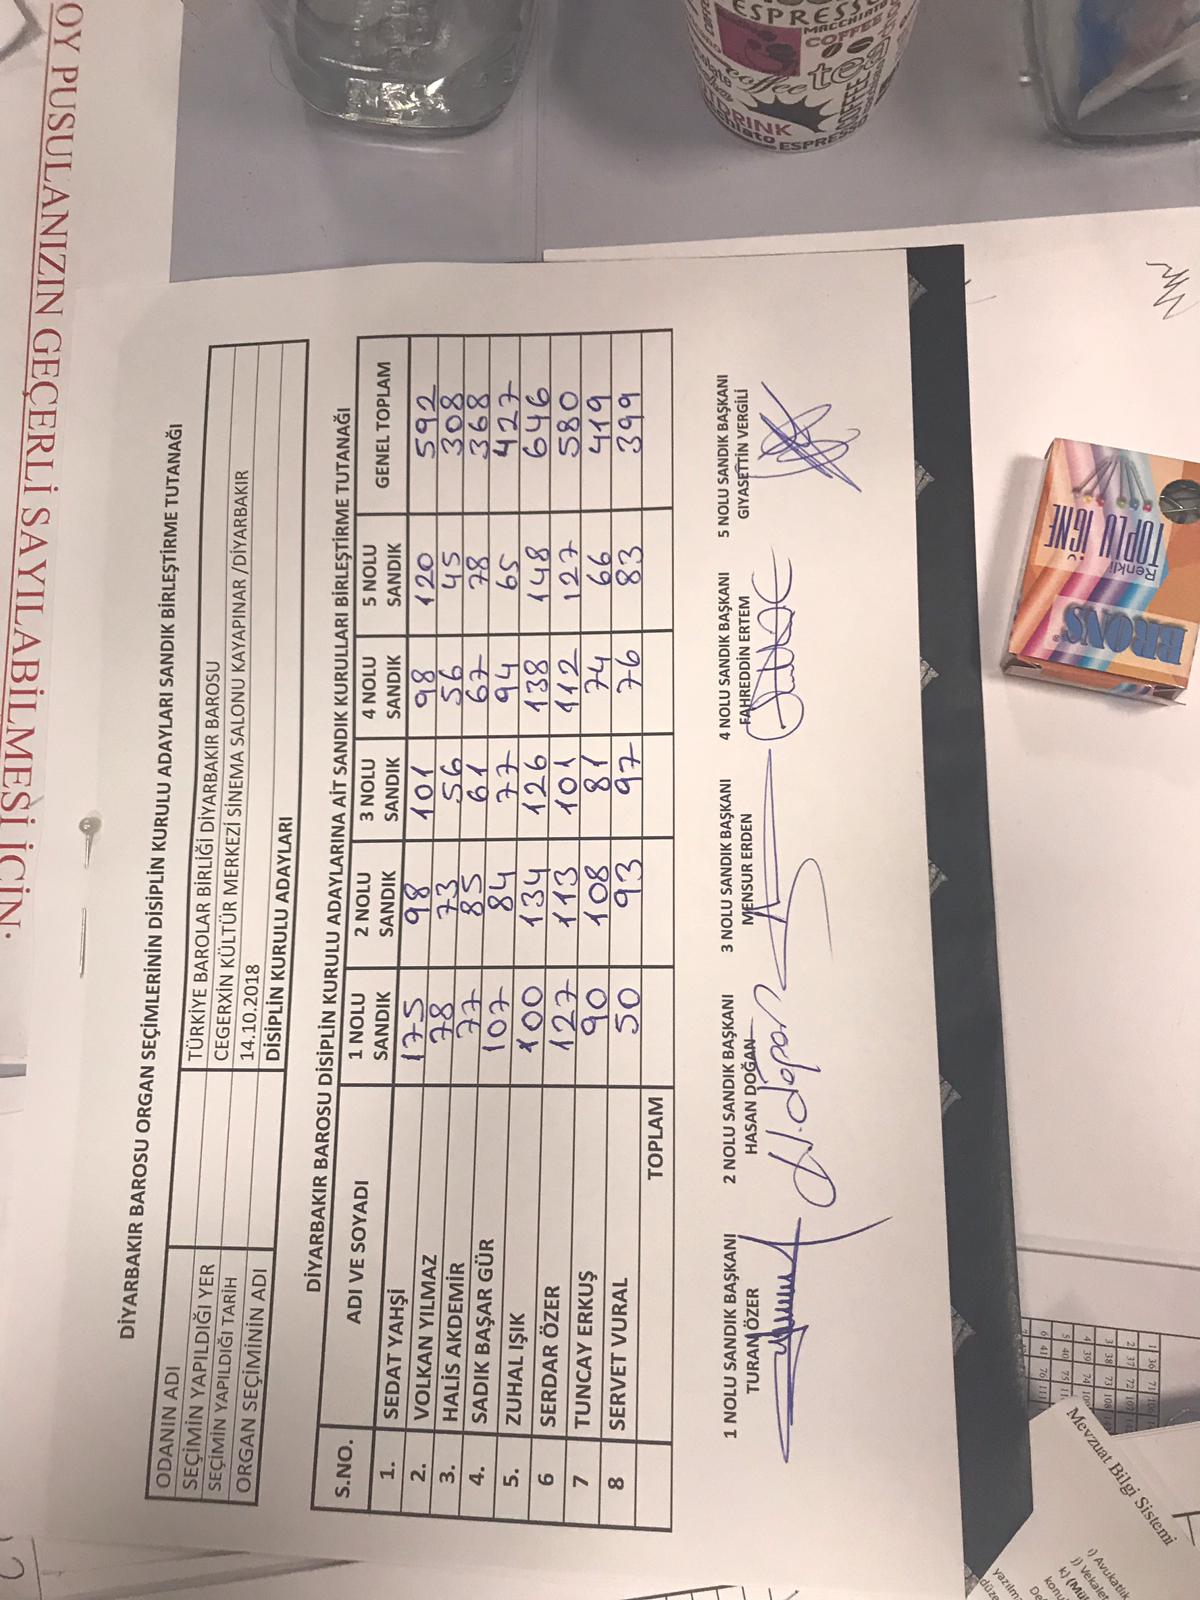 OY PUSULANIZIN GEÇERLİ SAYILABİLMESİ İÇİN:
DİYARBAKIR BAROSU ORGAN SEÇİMLERİNİN DİSİPLİN KURULU ADAYLARI SANDIK BİRLEŞTİRME TUTANAĞI
ODANIN ADI TÜRKİYE BAROLAR BİRLİĞİ DİYARBAKIR BAROSU
SEÇİMİN YAPILDIĞI YER CEGERXİN KÜLTÜR MERKEZİ SİNEMA SALONU KAYAPINAR /DİYARBAKIR
SEÇİMİN YAPILDIĞI TARİH 14.10.2018
ORGAN SEÇİMİNİN ADI DİSİPLİN KURULU ADAYLARI
DİYARBAKIR BAROSU DİSİPLİN KURULU ADAYLARINA AİT SANDIK KURULLARI BİRLEŞTİRME TUTANAĞI
S.NO. ADI VE SOYADI 1 NOLU SANDIK 2 NOLU SANDIK 3 NOLU SANDIK 4 NOLU SANDIK 5 NOLU SANDIK GENEL TOPLAM
1. SEDAT YAHŞİ 175 98 101 98 120 592
2. VOLKAN YILMAZ 78 73 56 56 45 308
3. HALİS AKDEMİR 77 85 61 67 78 368
4. SADIK BAŞAR GÜR 107 84 77 94 65 427
5. ZUHAL IŞIK 100 134 126 138 148 646
6 SERDAR ÖZER 127 113 101 112 127 580
7 TUNCAY ERKUŞ 90 108 81 74 66 419
8 SERVET VURAL 50 93 97 76 83 399
TOPLAM
1 NOLU SANDIK BAŞKANI 2 NOLU SANDIK BAŞKANI 3 NOLU SANDIK BAŞKANI 4 NOLU SANDIK BAŞKANI 5 NOLU SANDIK BAŞKANI
TURAN ÖZER HASAN DOĞAN MENSUR ERDEN FAHREDDİN ERTEM GIYASETTİN VERGİLİ
ESPRESSO
MACCHIATO
COFFEE
coffee
tea
DRINK
ESPRESSO
COFFEE
BRONS
Renkli
TOPLU İĞNE
Mevzuat Bilgi Sistemi
i) Avukatlık